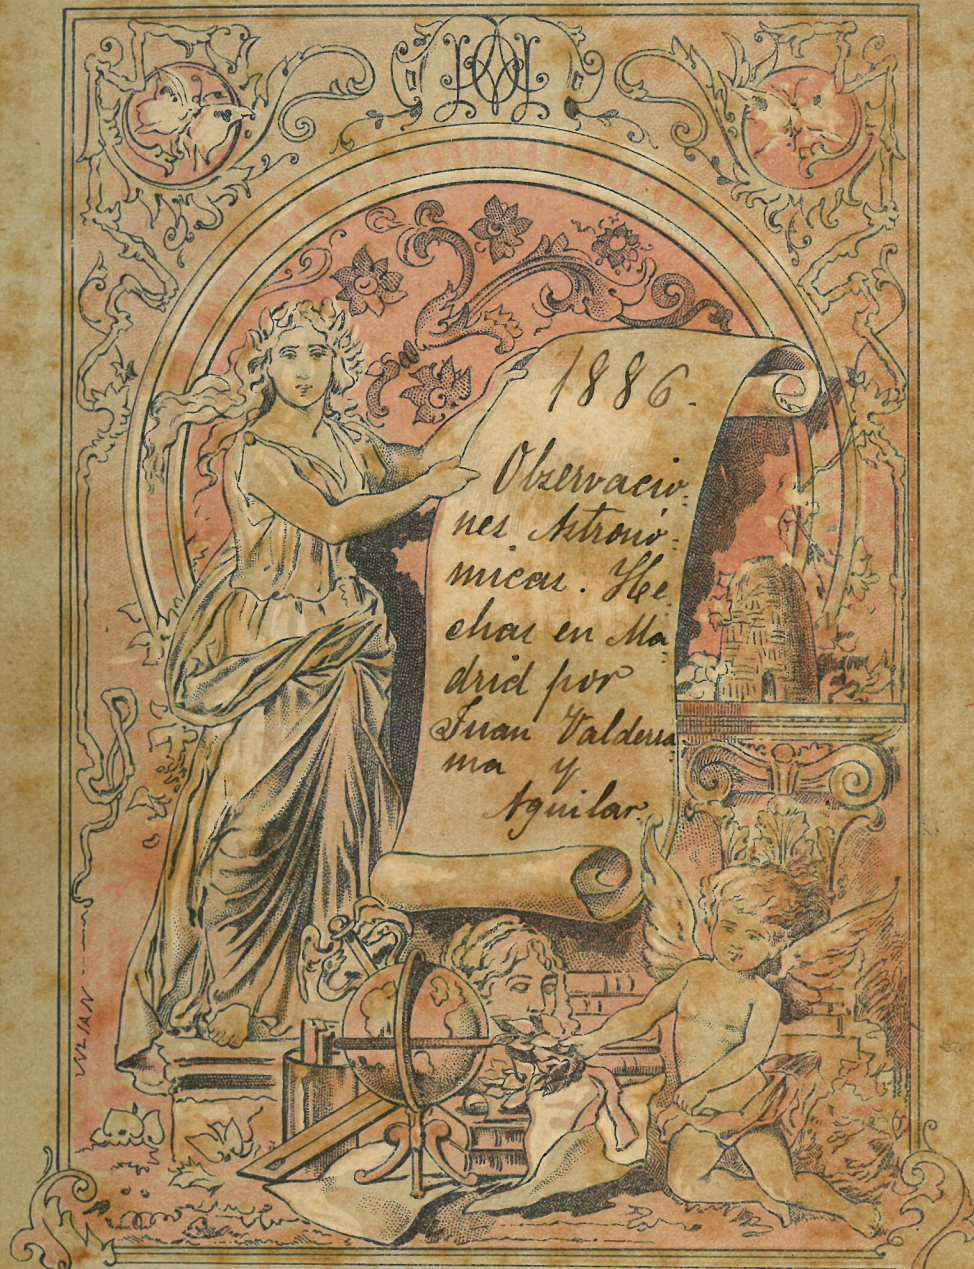 1886.
Observacio-
nes Astronó-
micas. He-
chas en Ma-
drid por
Juan Valderra
ma y
Aguilar.